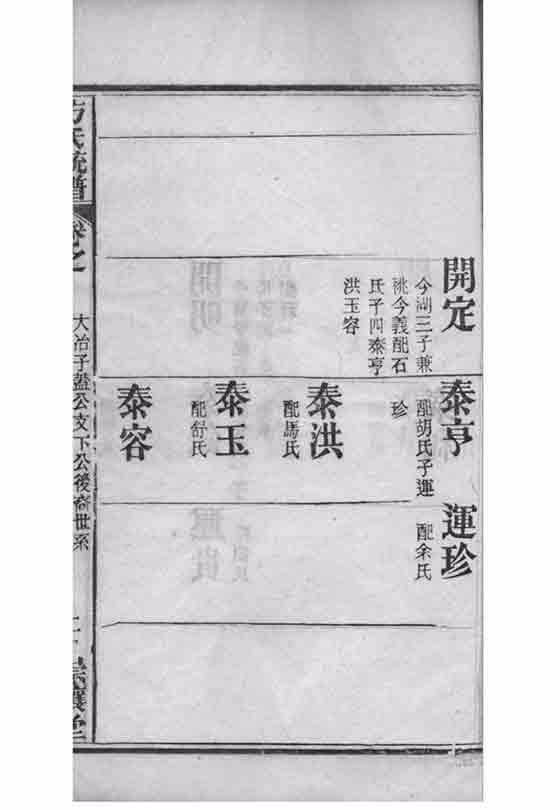 開定
今湖三子兼
祧今義配石
氏子四泰亨
洪玉容
泰亨
配胡氏子運
珍
運珍
配余氏
泰洪
配馬氏
泰玉
配舒氏
泰容
方氏統譜
卷之
大冶子盤公支下公後裔世系